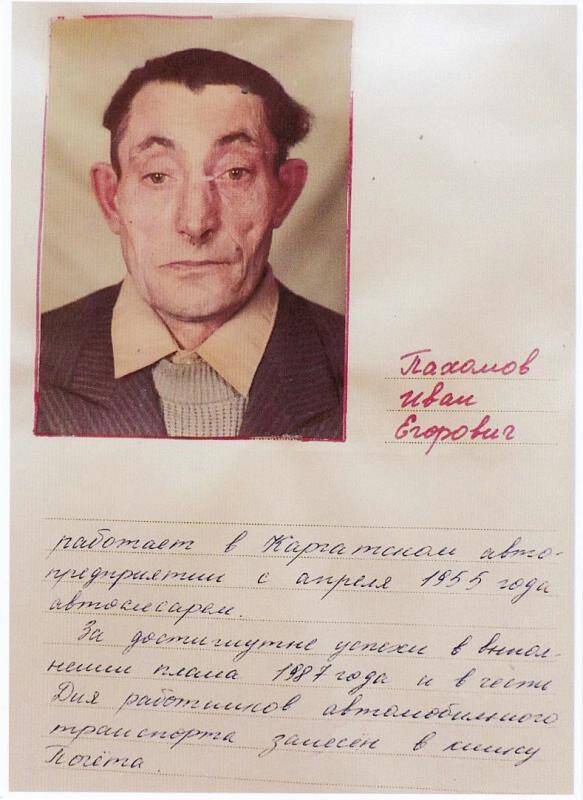 Пахомов
Иван
Егорович
работает в Каргатском авто-
предприятии с апреля 1955 года
автослесарем.
За достигнутые успехи в выпол-
нении плана 1987 года и в честь
Дня работников автомобильного
транспорта занесён в книгу
Почёта.